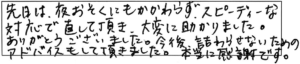 先日は、夜おそくにもかかわらず、スピーディーな
対応で直して頂き、大変に助かりました。
ありがとうございました。今後、詰わらせないための
アドバイスもして頂きました。本当に感謝です。